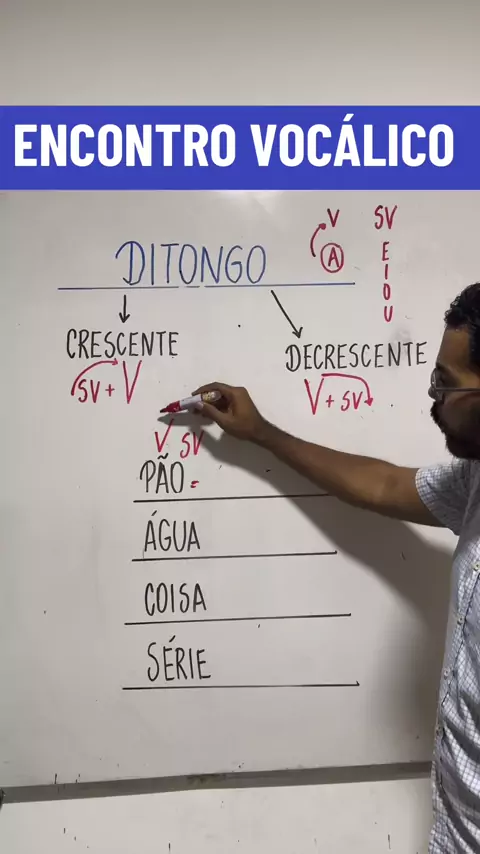 ENCONTRO VOCÁLICO
V SV
A E
I
O
U
DITONGO
CRESCENTE
SV + V
DECRESCENTE
V + SV
V SV
PÃO -
ÁGUA
COISA
SÉRIE